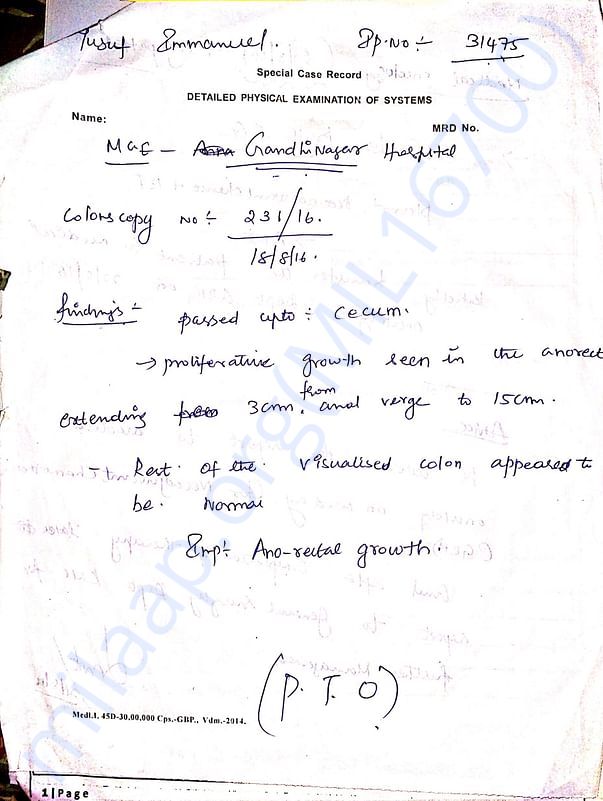 Yusuf Emmanuel. Ip.No :- 31475
Special Case Record
DETAILED PHYSICAL EXAMINATION OF SYSTEMS
Name:
MRD No.
MGE - Gandhi Nagar Hospital
Colonscopy No :- 231/16.
18/8/16.
findings :-
passed upto :- Cecum.
→ proliferative growth seen in the anorect
extending from 3cm. anal verge to 15cm.
- Rest of the visualised colon appeared to
be. Normal
Imp:- Ano-rectal growth.
(P. T. O)
Medl.I. 45D-30,00,000 Cps.-GBP., Vdm.-2014.
1|Page
milaap.org(MIL16700)